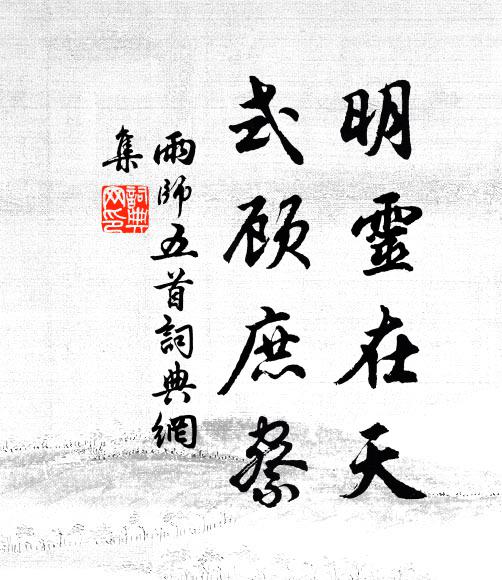 明靈在天
式顾庶察
雨師五首詞典網
集
詞典网印